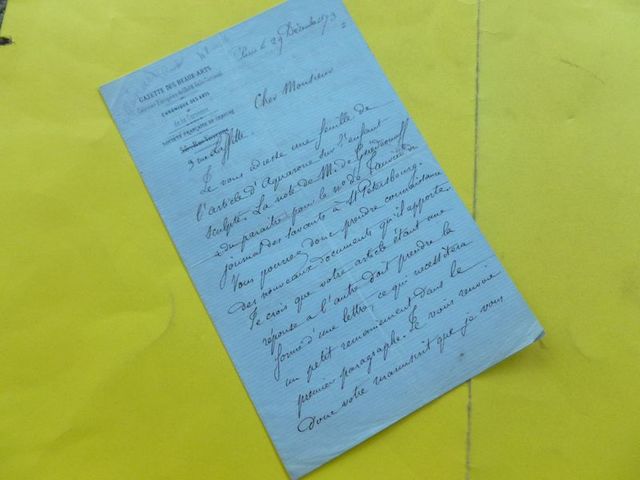 Paris le 29 Décembre 1873
GAZETTE DES BEAUX-ARTS
CHRONIQUE DES ARTS
SOCIÉTÉ FRANÇAISE DE GRAVURE
3 rue Laffitte.
Cher Monsieur
Je vous adresse une feuille de
l'article d'Aquarone sur l'enfant
sculpté. La note de M. de
a du paraitre dans le no de Janvier du
journal des savants à St Pétersbourg.
Vous pourrez donc prendre connaissance
des nouveaux documents qu'il apporte
Je crois que votre article étant une
réponse a l'autre doit prendre la
forme d'une lettre ce qui necessitera
un petit remaniement dans le
premier paragraphe. Je vais renvoie
donc votre manuscrit que je vous